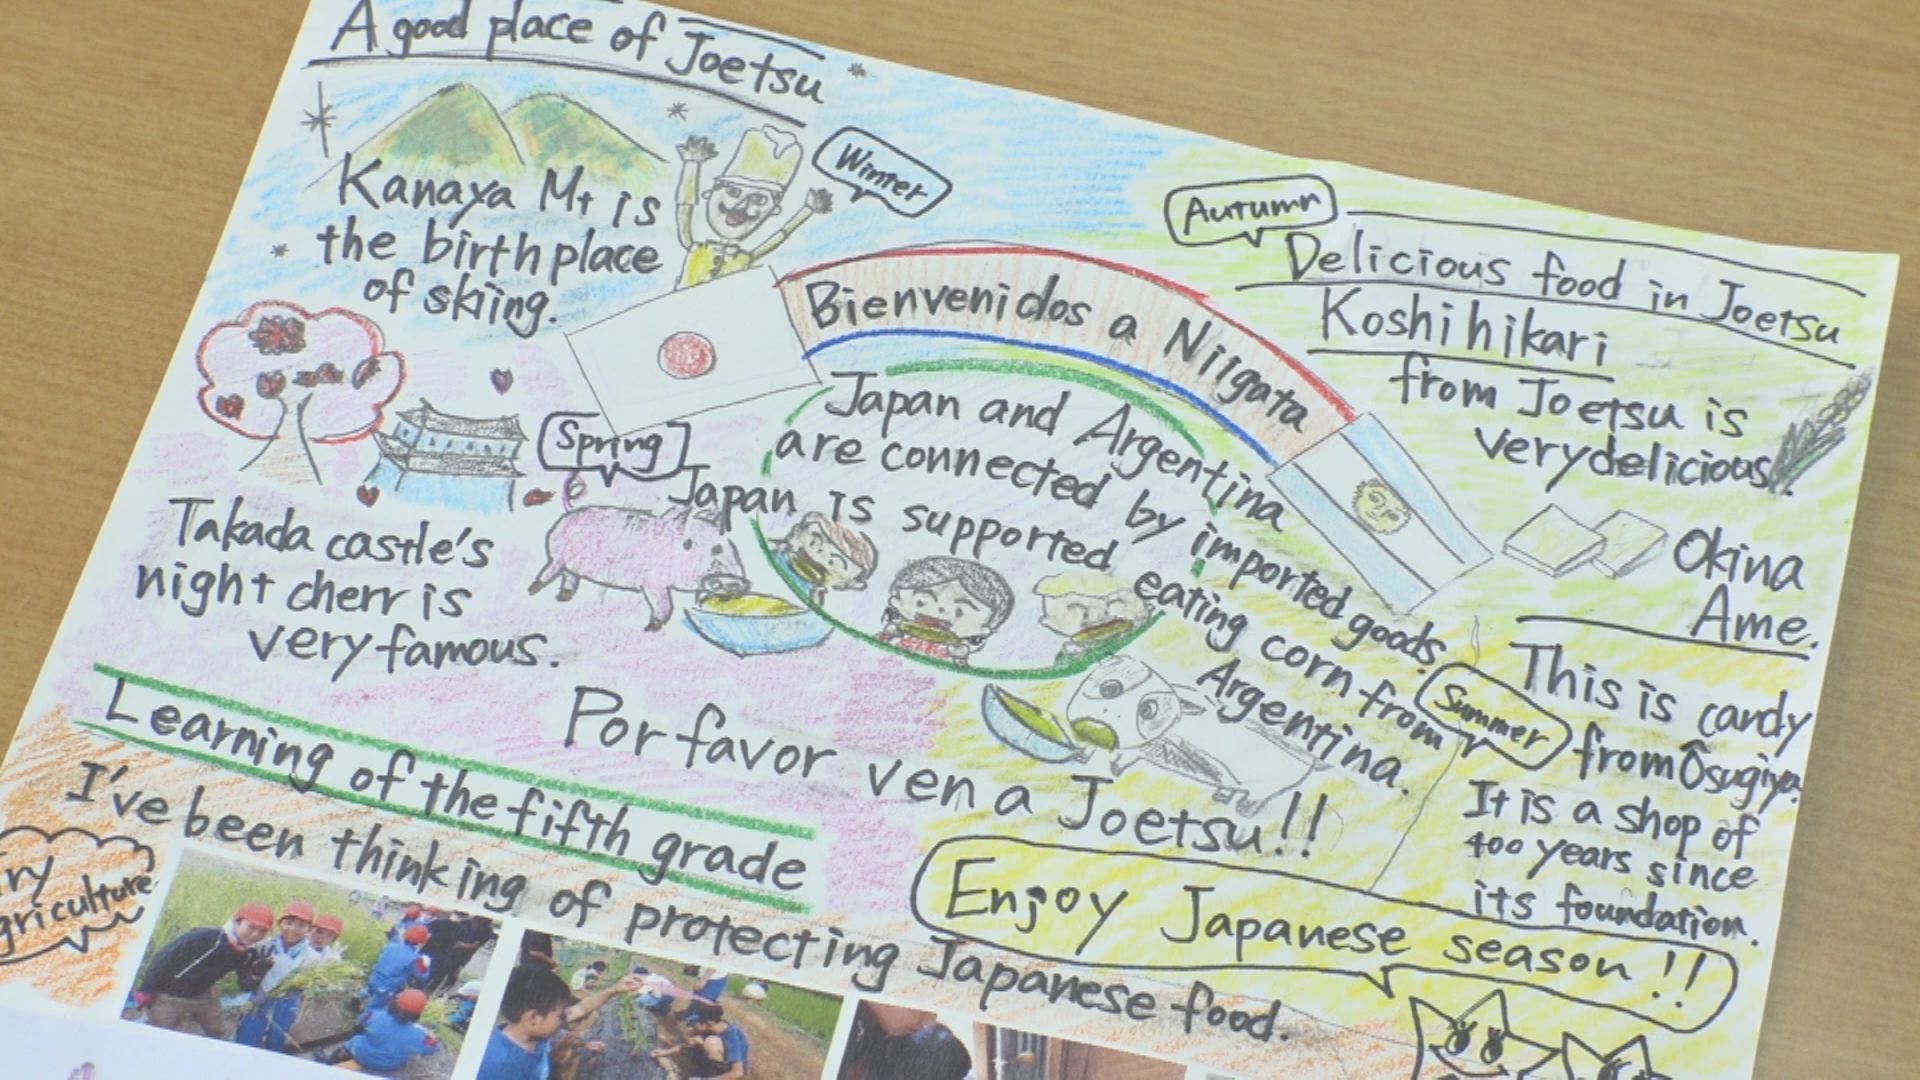 A good place of Joetsu
Kanaya Mt is
the birthplace
of skiing.
Winter
Autumn
Delicious food in Joetsu
Koshihikari
from Joetsu is
very delicious.
Bienvenidos a Niigata
Japan and Argentina
are connected by imported goods.
Japan is supported eating corn from
Argentina.
Spring
Takada castle's
night cherr is
very famous.
Okina
Ame.
This is candy
from Ôsugiya.
It is a shop of
400 years since
its foundation.
Summer
Por favor ven a Joetsu!!
Enjoy Japanese season!!
Learning of the fifth grade
I've been thinking of protecting Japanese food.
ry
griculture